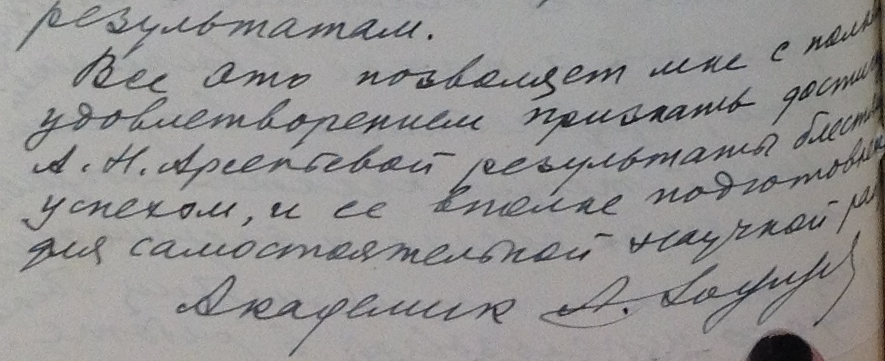 результатам.
Все это позволяет мне с полн
удовлетворением признать достиг
А. Н. Арсентьевой результаты блест
успехом, и ее вполне подготовлен
для самостоятельной научной ра
Академик А.